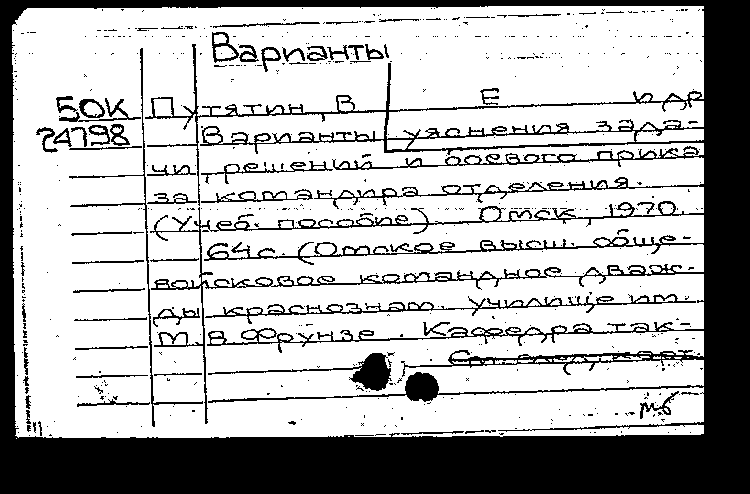 Варианты
50К Путятин, В Е и др
74798 Варианты уяснения зада-
чи, решений и боевого прика
за командира отделения.
(Учеб. пособие). Омск, 1970.
64с. (Омское высш. обще-
войсковое командное дваж-
ды краснознам. училище им.
М.В Фрунзе. Кафедра так-
См. след. карт.